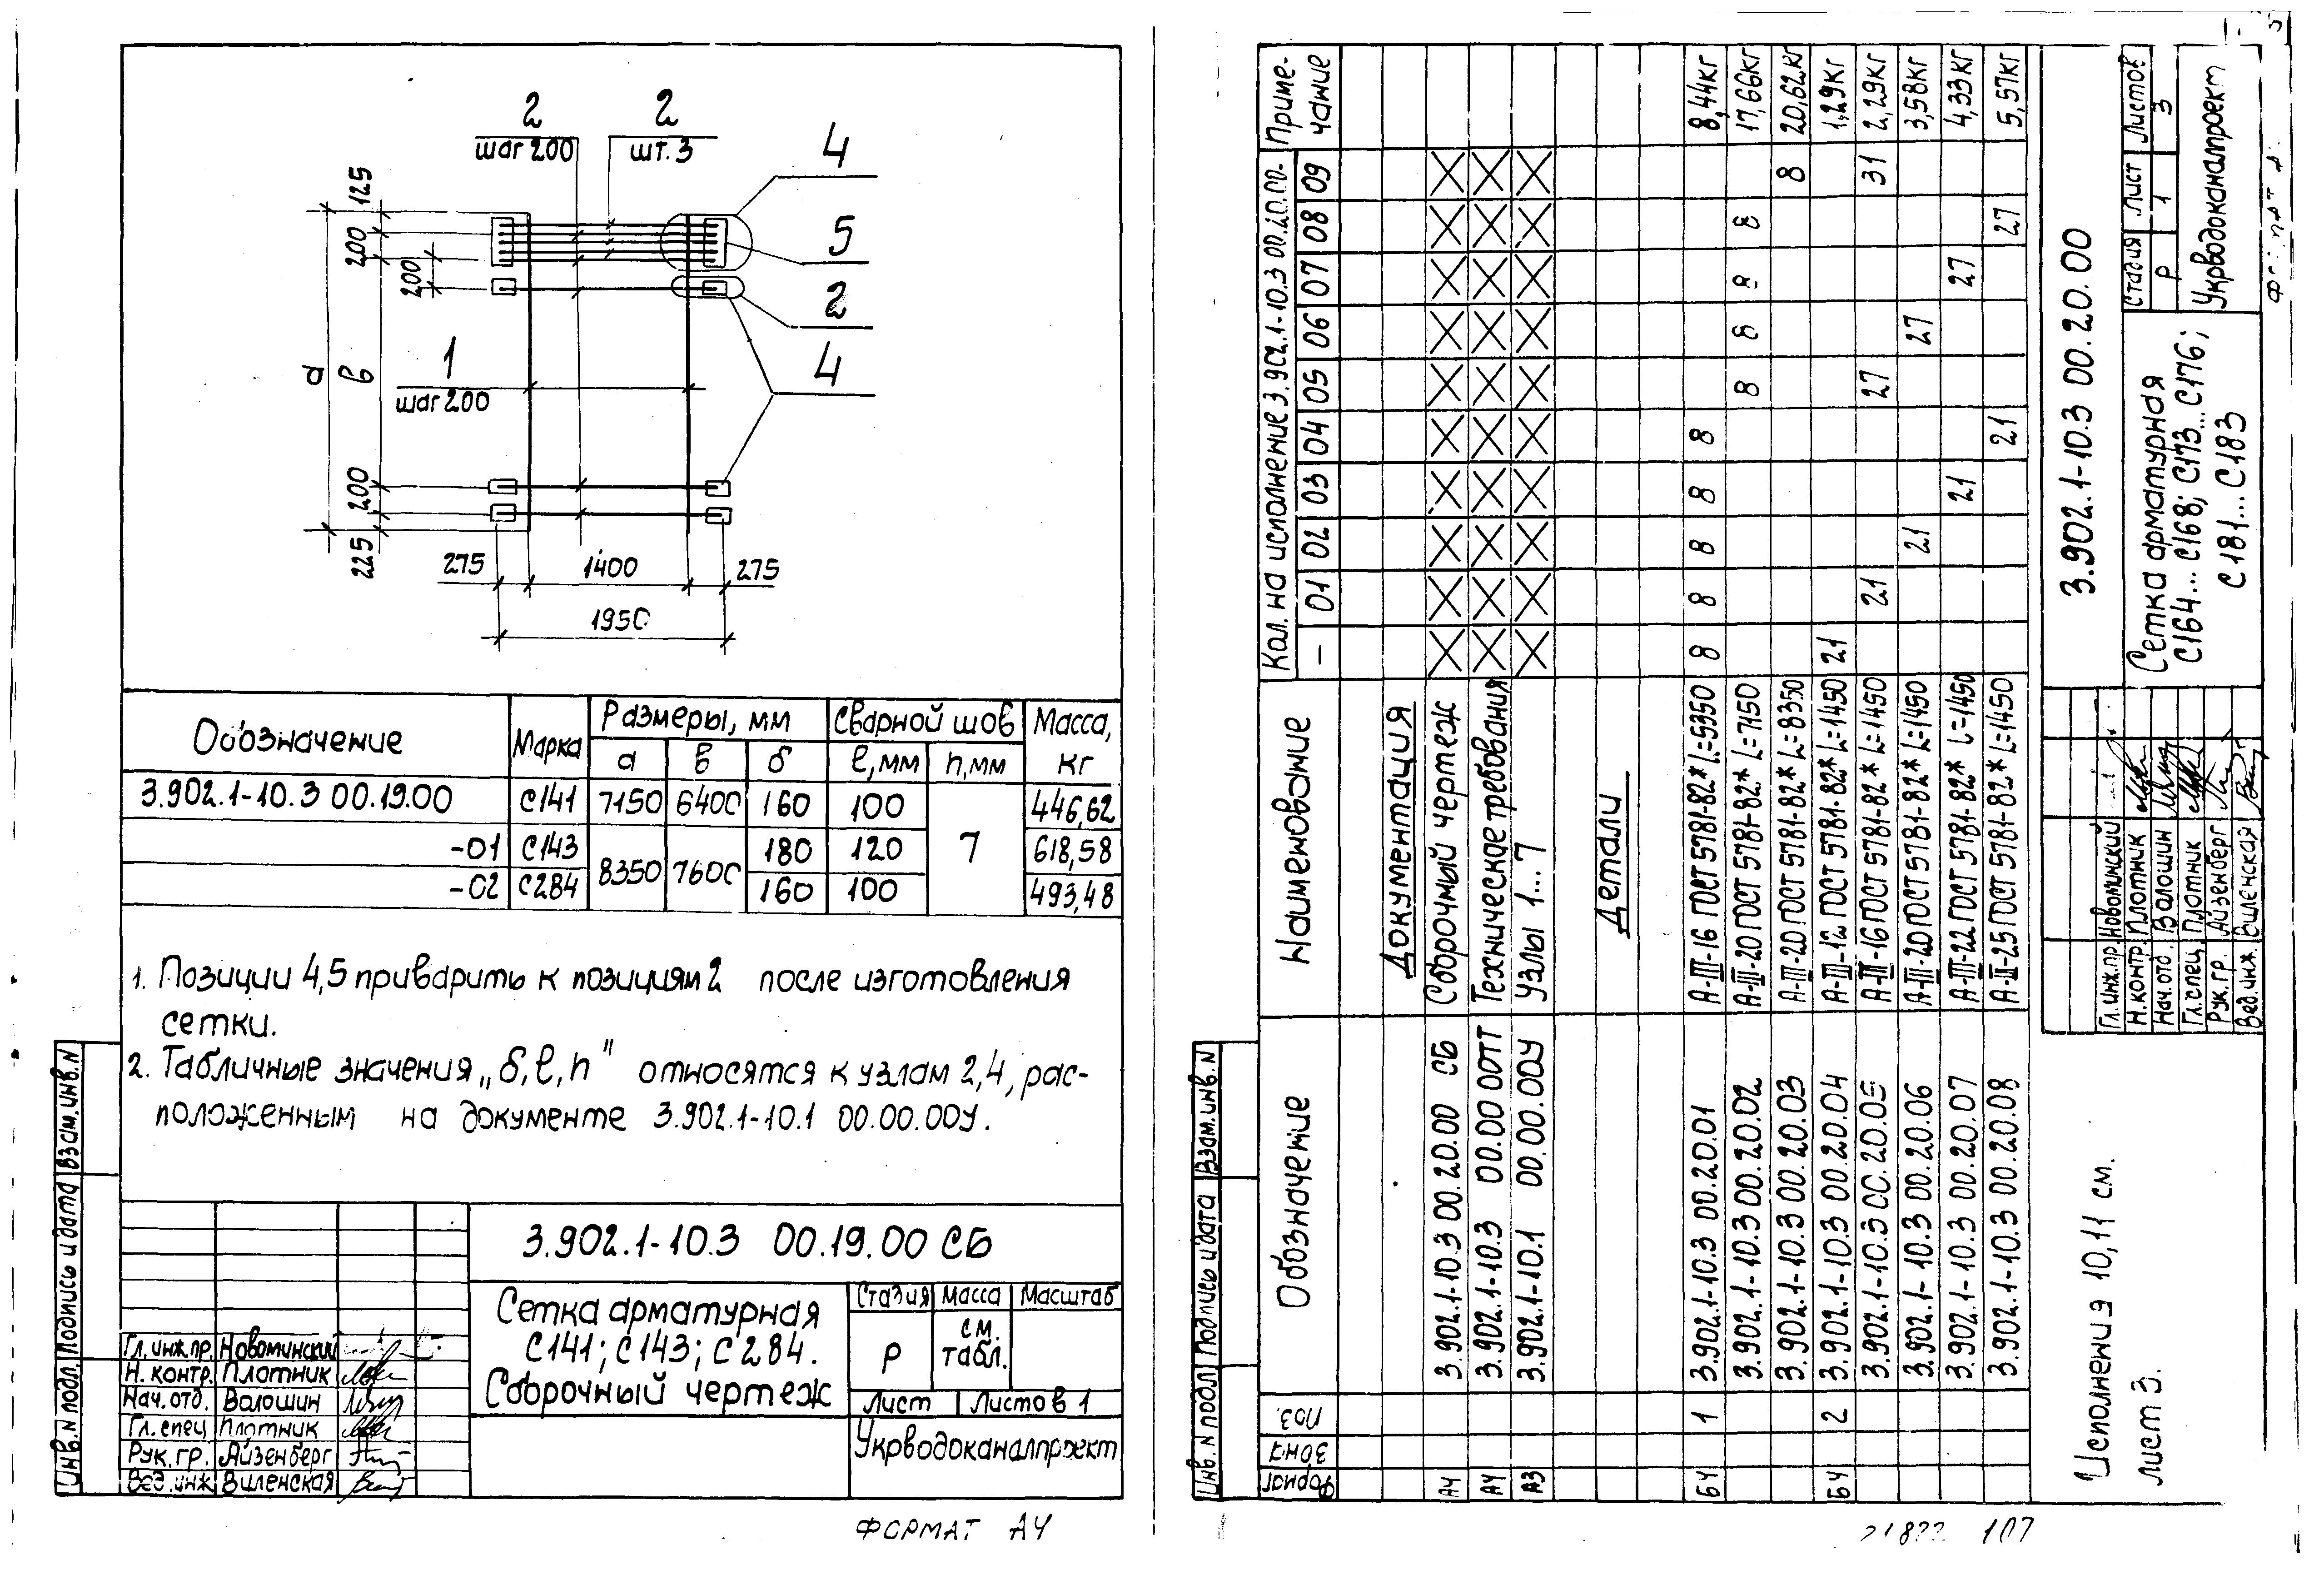 2
шаг 200
2
шт. 3
4
5
2
4
1
шаг 200
125
200
200
а
в
200
225
275
1400
275
1950
Обозначение Марка Размеры, мм Сварной шов Масса, кг
а в δ ℓ, мм h, мм
3.902.1-10.3 00.19.00 С141 7150 6400 160 100 7 446,62
-01 С143 8350 7600 180 120 618,58
-02 С284 160 100 493,48
1. Позиции 4,5 приварить к позициям 2 после изготовления
сетки.
2. Табличные значения „δ, ℓ, h" относятся к узлам 2,4, рас-
положенным на документе 3.902.1-10.1 00.00.00У.
3.902.1-10.3 00.19.00 СБ
Сетка арматурная
С141; С143; С284.
Сборочный чертеж
Стадия Масса Масштаб
Р см. табл.
Лист Листов 1
Укрводоканалпроект
Гл. инж. пр. Новоминский
Н. контр. Плотник
Нач. отд. Волошин
Гл. спец Плотник
Рук. гр. Айзенберг
Вед. инж Виленская
Инв. N подл. Подпись и дата Взам. инв. N
ФОРМАТ А4
Формат Зона Поз. Обозначение Наименование Кол. на исполнение 3.902.1-10.3 00.20.00- Приме-
чание
— 01 02 03 04 05 06 07 08 09
Документация
А4 3.902.1-10.3 00.20.00 СБ Сборочный чертеж
А4 3.902.1-10.3 00.00 00ТТ Технические требования
А3 3.902.1-10.1 00.00.00У Узлы 1...7
Детали
БЧ 1 3.902.1-10.3 00.20.01 А-III-16 ГОСТ 5781-82* L=5350 8 8 8 8 8 8,44кг
3.902.1-10.3 00.20.02 А-III-20 ГОСТ 5781-82* L=7150 8 8 8 8 17,66кг
3.902.1-10.3 00.20.03 А-III-20 ГОСТ 5781-82* L=8350 8 20,62кг
БЧ 2 3.902.1-10.3 00.20.04 А-III-12 ГОСТ 5781-82* L=1450 21 1,29кг
3.902.1-10.3 00.20.05 А-III-16 ГОСТ 5781-82* L=1450 21 27 31 2,29кг
3.902.1-10.3 00.20.06 А-III-20 ГОСТ 5781-82* L=1450 21 27 3,58кг
3.902.1-10.3 00.20.07 А-III-22 ГОСТ 5781-82* L=1450 21 27 4,33кг
3.902.1-10.3 00.20.08 А-III-25 ГОСТ 5781-82* L=1450 21 27 5,57кг
Исполнения 10,11 см.
лист 3.
3.902.1-10.3 00.20.00
Сетка арматурная
С164...С168; С173...С176;
С181...С183
Стадия Лист Листов
Р 1 3
Укрводоканалпроект
Гл. инж. пр. Новоминский
Н. контр. Плотник
Нач. отд Волошин
Гл. спец Плотник
Рук. гр. Айзенберг
Вед. инж. Виленская
Инв. N подл Подпись и дата Взам. инв. N
107